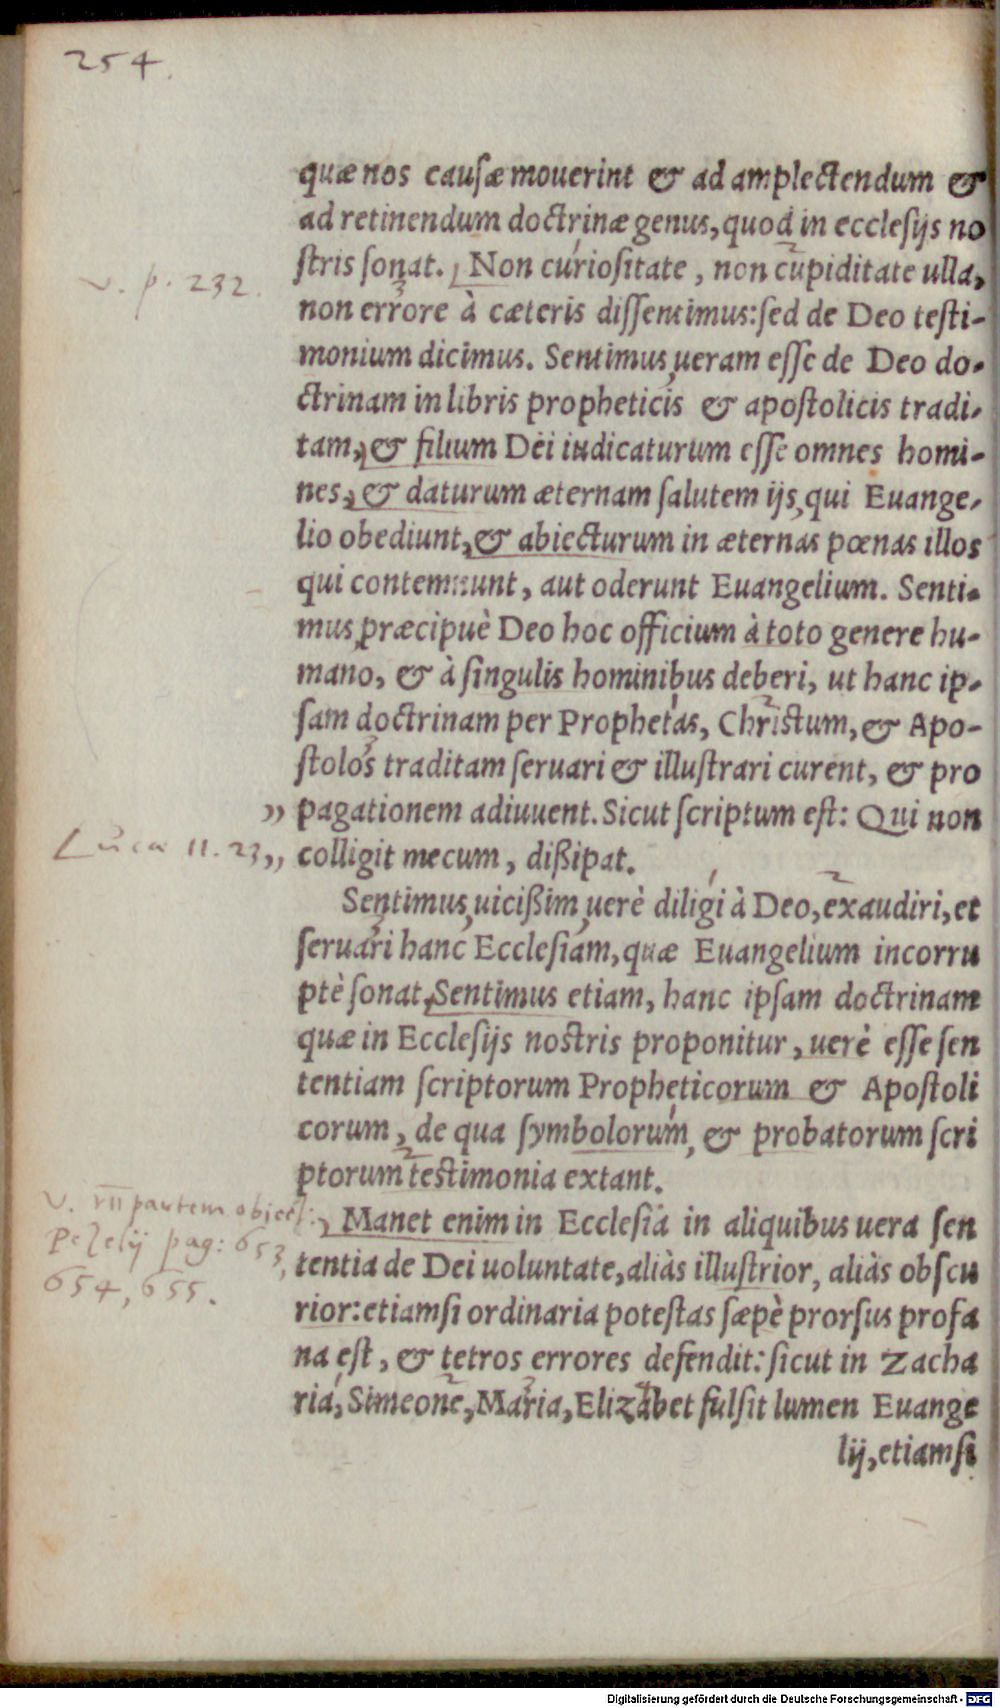 254.
quæ nos causæ mouerint & ad amplectendum &
ad retinendum doctrinæ genus, quod in ecclesijs no
stris sonat. Non curiositate, non cupiditate ulla,
v. p. 232.
non errore à cæteris dissentimus: sed de Deo testi-
monium dicimus. Sentimus, ueram esse de Deo do-
ctrinam in libris propheticis & apostolicis tradi-
tam, & filium Dei iudicaturum esse omnes homi-
nes, & daturum æternam salutem ijs, qui Euange-
lio obediunt, & abiecturum in æternas pœnas illos
qui contemnunt, aut oderunt Euangelium. Senti-
mus, præcipuè Deo hoc officium à toto genere hu-
mano, & à singulis hominibus deberi, ut hanc ip-
sam doctrinam per Prophetas, Christum, & Apo-
stolos traditam seruari & illustrari curent, & pro
„ pagationem adiuuent. Sicut scriptum est: Qui non
Luca 11. 23
„ colligit mecum, dißipat.
Sentimus, uicißim, uerè diligi à Deo, exaudiri, et
seruari hanc Ecclesiam, quæ Euangelium incorru
ptè sonat, Sentimus etiam, hanc ipsam doctrinam
quæ in Ecclesijs nostris proponitur, uerè esse sen
tentiam scriptorum Propheticorum & Apostoli
corum, de qua symbolorum, & probatorum scri
ptorum testimonia extant.
v. partem object:
Pezelij pag: 653,
654, 655.
Manet enim in Ecclesia in aliquibus uera sen
tentia de Dei uoluntate, aliàs illustrior, aliàs obscu
rior: etiamsi ordinaria potestas sæpè prorsus profa
na est, & tetros errores defendit: sicut in Zacha
ria, Simeone, Maria, Elizabet fulsit lumen Euange
lij, etiamsi
Digitalisierung gefördert durch die Deutsche Forschungsgemeinschaft - DFG